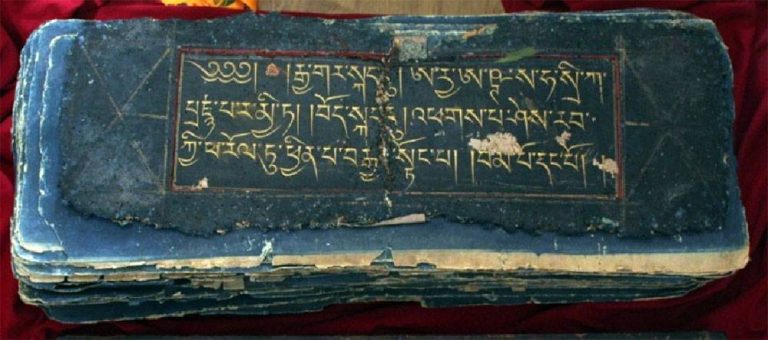 ༄༅༅། །རྒྱ་གར་སྐད་དུ། ཨ་རྱ་ཨ་ཥྚ་ས་ཧ་སྲི་ཀ་
པྲཛྙཱ་པར་མྱི་ཏ། །བོད་སྐད་དུ། འཕགས་པ་ཤེས་རབ་
ཀྱི་ཕ་རོལ་ཏུ་ཕྱིན་པ་བརྒྱད་སྟོང་པ། །བམ་པོ་དང་པོ། །